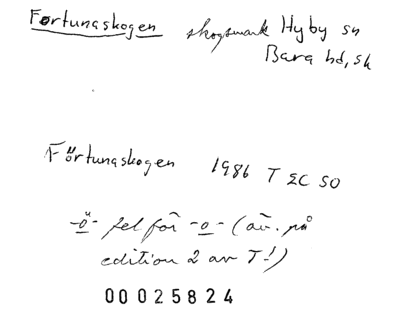 Fortunaskogen skogsmark Hyby sn
Bara hd, Sk
Förtunaskogen 1986 T ΣC SO
-ö- fel för -o- (äv. på
edition 2 av T!)
00025824